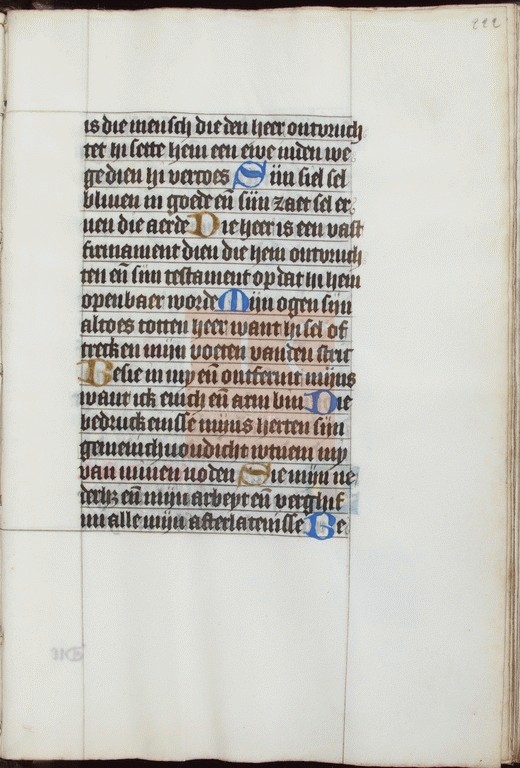 222
is die mensch die den heer ontvruch
tet hi sette hem een ewe inden we
ge dien hi vercoes Siin siel sel
bliuen in goede eñ siin zaet sel er
uen die aerde Die heer is een vast
firmament dien die hem ontvruch
ten eñ siin testament op dat hi hem
openbaer worde Mijn ogen sijn
altoes totten heer want hi sel of
trecken mijn voeten vanden stric
Besie in my eñ ontferm mijns
want ick enich eñ arm bin Die
bedruckenisse mijns herten sijn
gemenichuoudicht wtuem my
van minen noden Sie mijn ne
derhz eñ mijn arbeyt eñ verghif
mi alle mijn afterlatenisse Be